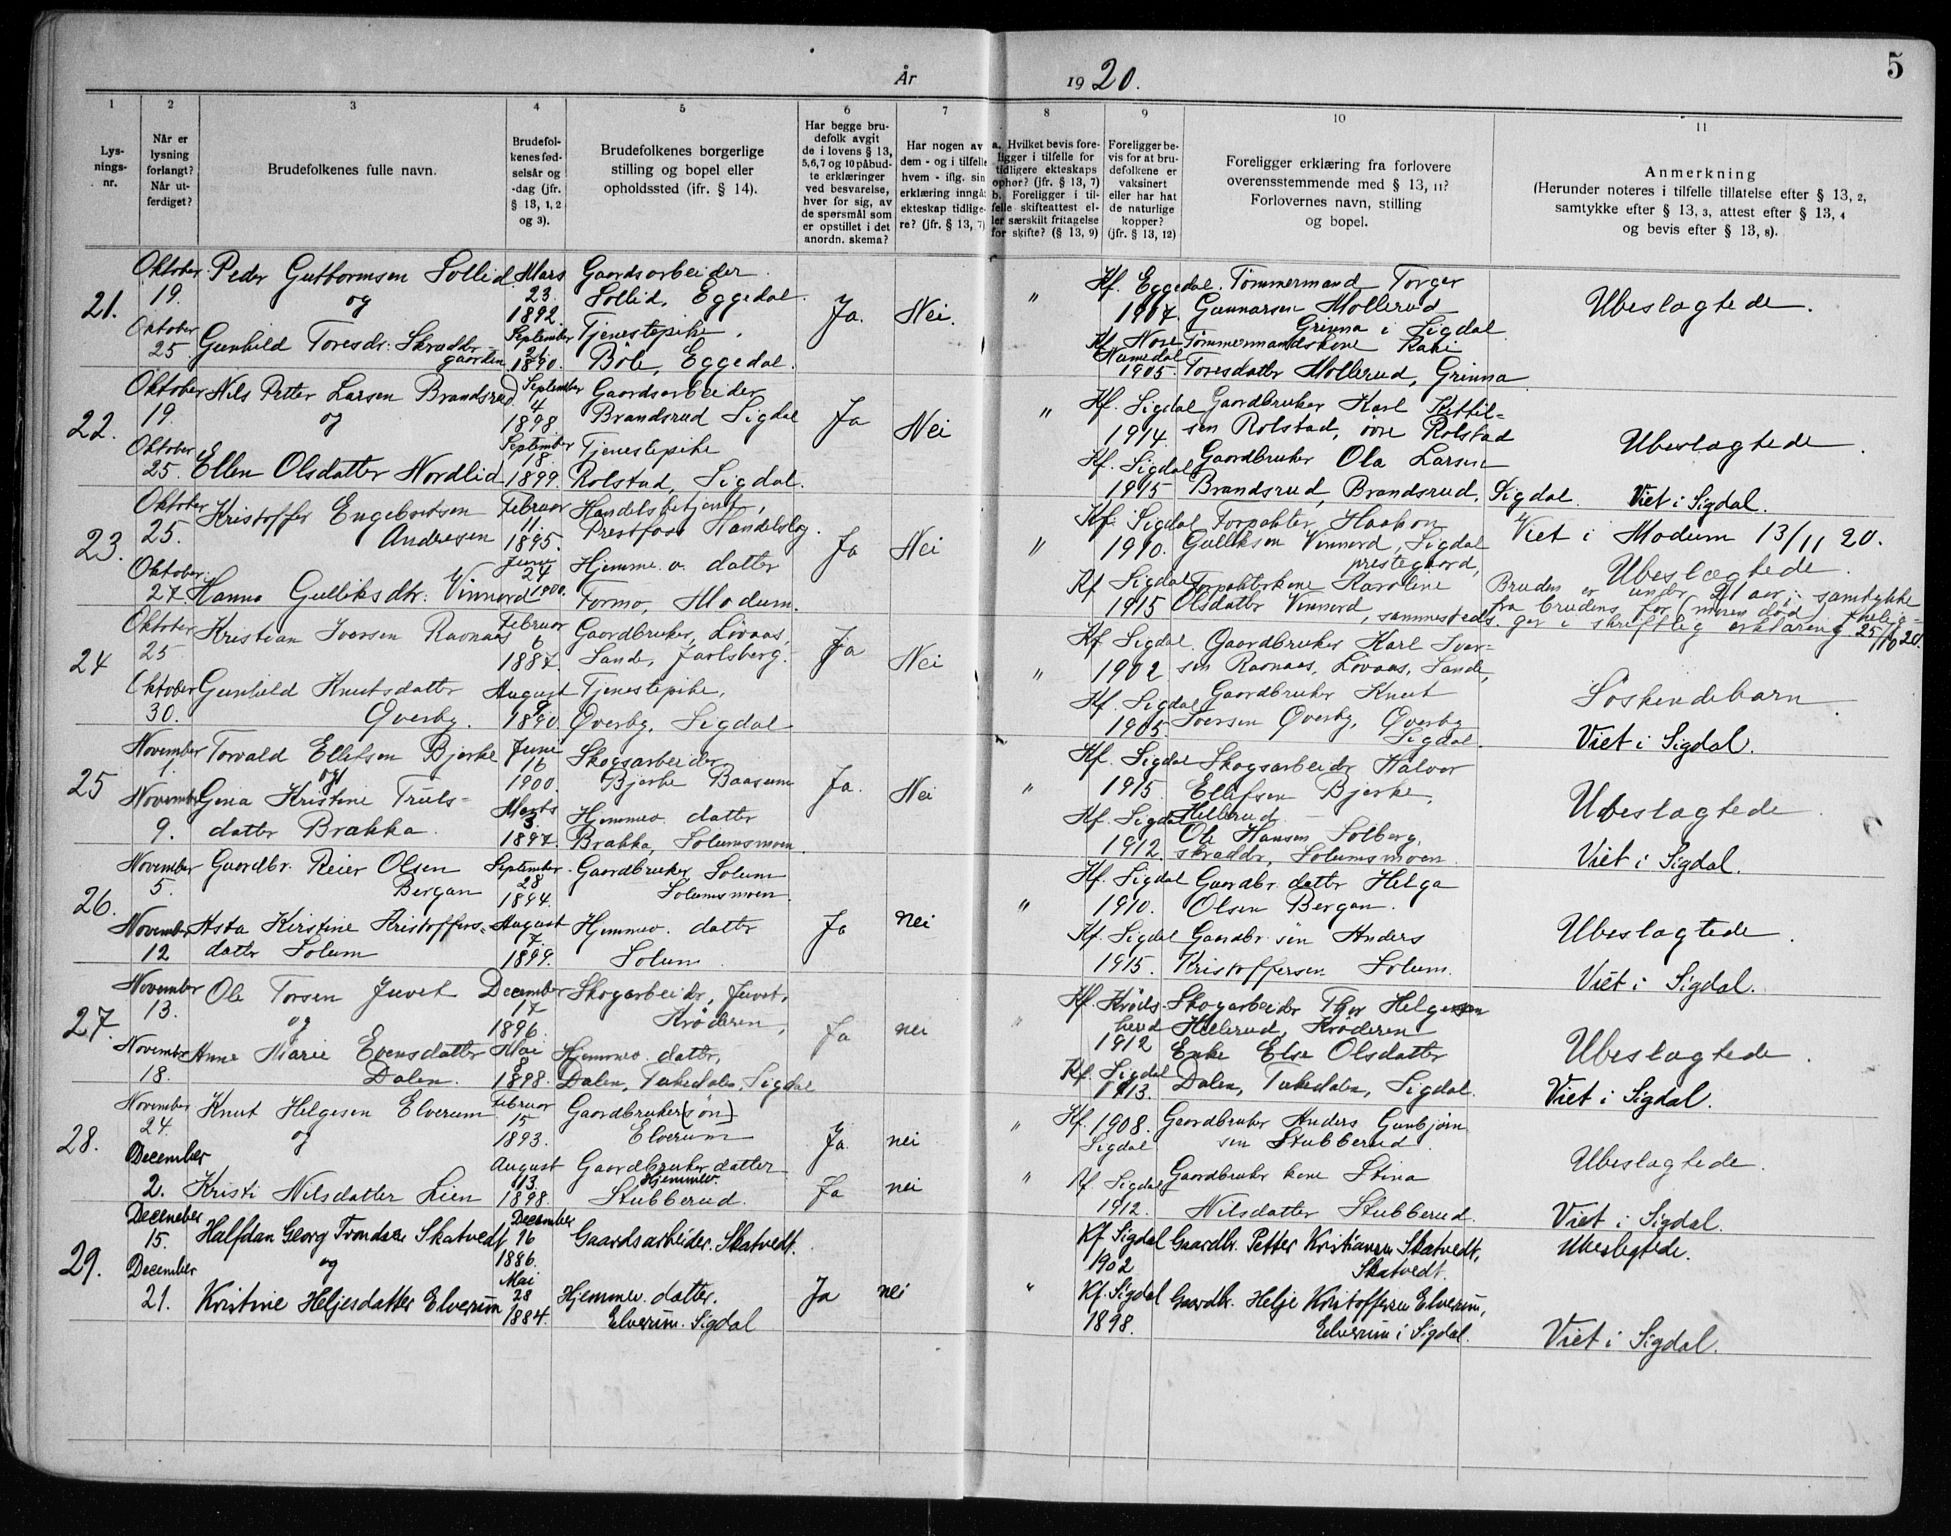 År 1920. 5
1 2 3 4 5 6 7 8 9 10 11
Lys-
nings-
nr.
Når er
lysning
forlangt?
Når ut-
ferdiget?
Brudefolkenes fulle navn.
Brudefol-
kenes fød-
selsår og
-dag (jfr.
§ 13, 1, 2
og 3).
Brudefolkenes borgerlige
stilling og bopel eller
opholdssted (ifr. § 14).
Har begge bru-
defolk avgit
de i lovens § 13,
5,6,7 og 10 påbud-
te erklæringer
ved besvarelse,
hver for sig, av
de spørsmål som
er opstillet i det
anordn. skema?
Har nogen av
dem - og i tilfelle
hvem - iflg. sin
erklæring inngåt
ekteskap tidlige-
re? (jfr. § 13, 7)
a. Hvilket bevis fore-
ligger i tilfelle for
tidligere ekteskaps
ophør? (jfr. § 13, 7)
b. Foreligger i til-
felle skifteattest el-
ler særskilt fritagelse
for skifte? (§ 13, 9)
Foreligger be-
vis for at bru-
defolkene er
vaksinert
eller har hat
de naturlige
kopper?
(jfr. § 13, 12)
Foreligger erklæring fra forlovere
overensstemmende med § 13, 11?
Forlovernes navn, stilling
og bopel.
Anmerkning
(Herunder noteres i tilfelle tillatelse efter § 13, 2,
samtykke efter § 13, 3, attest efter § 13, 4
og bevis efter § 13, 8).
21.
Oktober
19.
Oktober
25
Peder Guttormsen Sollid
og
Gunhild Toresdr. Skraddr-
gaarden
Mars
23.
1892.
September
26
1890.
Gaardsarbeider
Sollid, Eggedal.
Tjenestepike,
Böle, Eggedal.
Ja.
Nei.
"
Kf. Eggedal.
1907.
Kf. Nore
Numedal
1905.
Tømmermand Torger
Gunnarsen Mollerud
Grinna i Sigdal
Tømmermandskone Kari
Toresdatter Mollerud, Grinna
Ubeslagtede.
22.
Oktober
19.
Oktober
25.
Nils Petter Larsen Brandsrud
og
Ellen Olsdatter Nordlid
September
4
1898
September
18
1899.
Gaardsarbeider
Brandsrud Sigdal
Tjenestepike
Rolstad, Sigdal.
Ja
Nei
"
Kf. Sigdal
1914.
Kf. Sigdal
1915
Gaardbruker Karl Kittil-
sen Rolstad, övre Rolstad
Gaardbruker Ola Larsen
Brandsrud, Brandsrud, Sigdal.
Ubeslagtede
Viet i Sigdal.
23.
Oktober
25.
Oktober
27.
Kristoffer Engebretsen
Andresen
Hanna Gulliksdtr. Vinnord
Februar
11
1895.
Juni
24
1900.
Handelsbetjent,
Prestfoss Handelslag.
Hjemme v. datter
Formo, Modum.
Ja
Nei
"
Kf. Sigdal
1910.
Kf Sigdal
1915
Forpakter Haakon
Gulliksen Vinnord, Sigdal
prestegaard,
Forpakterkone Karoline
Olsdatter Vinnord
, sammesteds.
Viet i Modum 13/11 20.
Ubeslægtede.
Bruden er under 21 aar; samtykke
fra brudens far (moren död) forelig-
ger i skriftlig erklæring 25/10 20.
24
Oktober
25
Oktober
30.
Kristian Iversen Ravnaas
Gunhild Knutsdatter
Qverby.
Februar
6
1887
August
9
1890.
Gaardbruker, Lövaas,
Sande, Jarlsberg.
Tjenestepike,
Qverby, Sigdal
Ja
Nei
"
Kf. Sigdal
1902
Kf. Sigdal
1905.
Gaardbruker Karl Iver-
sen Ravnaas, Lövaas, Sande,
Gaardbruker Knut
Iversen Qverby, Qverby
Sigdal.
Söskendebarn
Viet i Sigdal.
25
November
1.
November
9.
Torvald Ellefsen Bjerke
og
Gina Kristine Truls-
datter Brakka.
Juni
16
1900.
Marts
3.
1897.
Skogsarbeider
Bjerke Baasum
Hjemmev. datter
Brakka, Solumsmoen.
Ja.
Nei
"
Kf. Sigdal
1915.
Kf. Sigdal
1912.
Skogsarbeidr Halvor
Ellefsen Bjerke,
Hellerud.
Ole Hansen Solberg,
skraddr, Solumsmoen.
Ubeslagtede
Viet i Sigdal.
26.
November
5.
November
12
Gaardbr. Reier Olsen
Bergan
Asta Kirstine Kristoffers-
datter Solum
September
28
1894.
August
7.
1899.
Gaardbruker, Solum
Solumsmoen.
Hjemmev. datter
Solum
Ja
nei
"
Kf. Sigdal
1910.
Kf. Sigdal
1915.
Gaardbr. datter Helga
Olsen Bergan.
Gaardbr. sön Anders
Kristoffersen Solum.
Ubeslagtede.
Viet i Sigdal.
27.
November
13.
November
18.
Ole Torsen Juvet
og
Anne Marie Evensdatter
Dalen.
December
17
1896.
Mai
8
1898.
Skogarbeidr, Juvet,
Kröderen,
Hjemmev. datter,
Dalen, Tukedalen, Sigdal
Ja
nei
"
Kf. Kröds-
herred
1912
Kf. Sigdal
1913.
Skogarbeider Thor Helgesen
Hillerud, Kröderen
Enke Else Olsdatter
Dalen, Tukedalen, Sigdal.
Ubeslagtede.
Viet i Sigdal.
28.
November
24.
December
2.
Knut Helgesen Elverum
og
Kristi Nilsdatter Lien
Februar
15
1893.
August
13.
1898.
Gaardbruker(sön)
Elverum
Gaardbruker datter
Hjemmev.
Stubberud.
Ja
nei
Ja
nei
"
"
Kf. 1908.
Sigdal
Kf. Sigdal
1912.
Gaardbruker Anders Gunbjörn
sen Stubberud
Gaardbruker kone Stina
Nilsdatter Stubberud.
Ubeslagtede.
Viet i Sigdal.
29.
December
15.
December
21.
Halfdan Georg Trondsen Skatvedt
og
Kristine Heljesdatter Elverum
December
16
1886.
Mai
28
1884.
Gaardsarbeider. Skatvedt.
Hjemmev. datter.
Elverum. Sigdal
Ja
nei
"
Kf Sigdal
1902
Kf. Sigdal
1898.
Gaardbr. Petter Kristiansen Skatvedt,
Skatvedt.
Gaardbr. Helje Kristoffersen Elverum,
Elverum i Sigdal.
Ubeslegtede.
Viet i Sigdal.